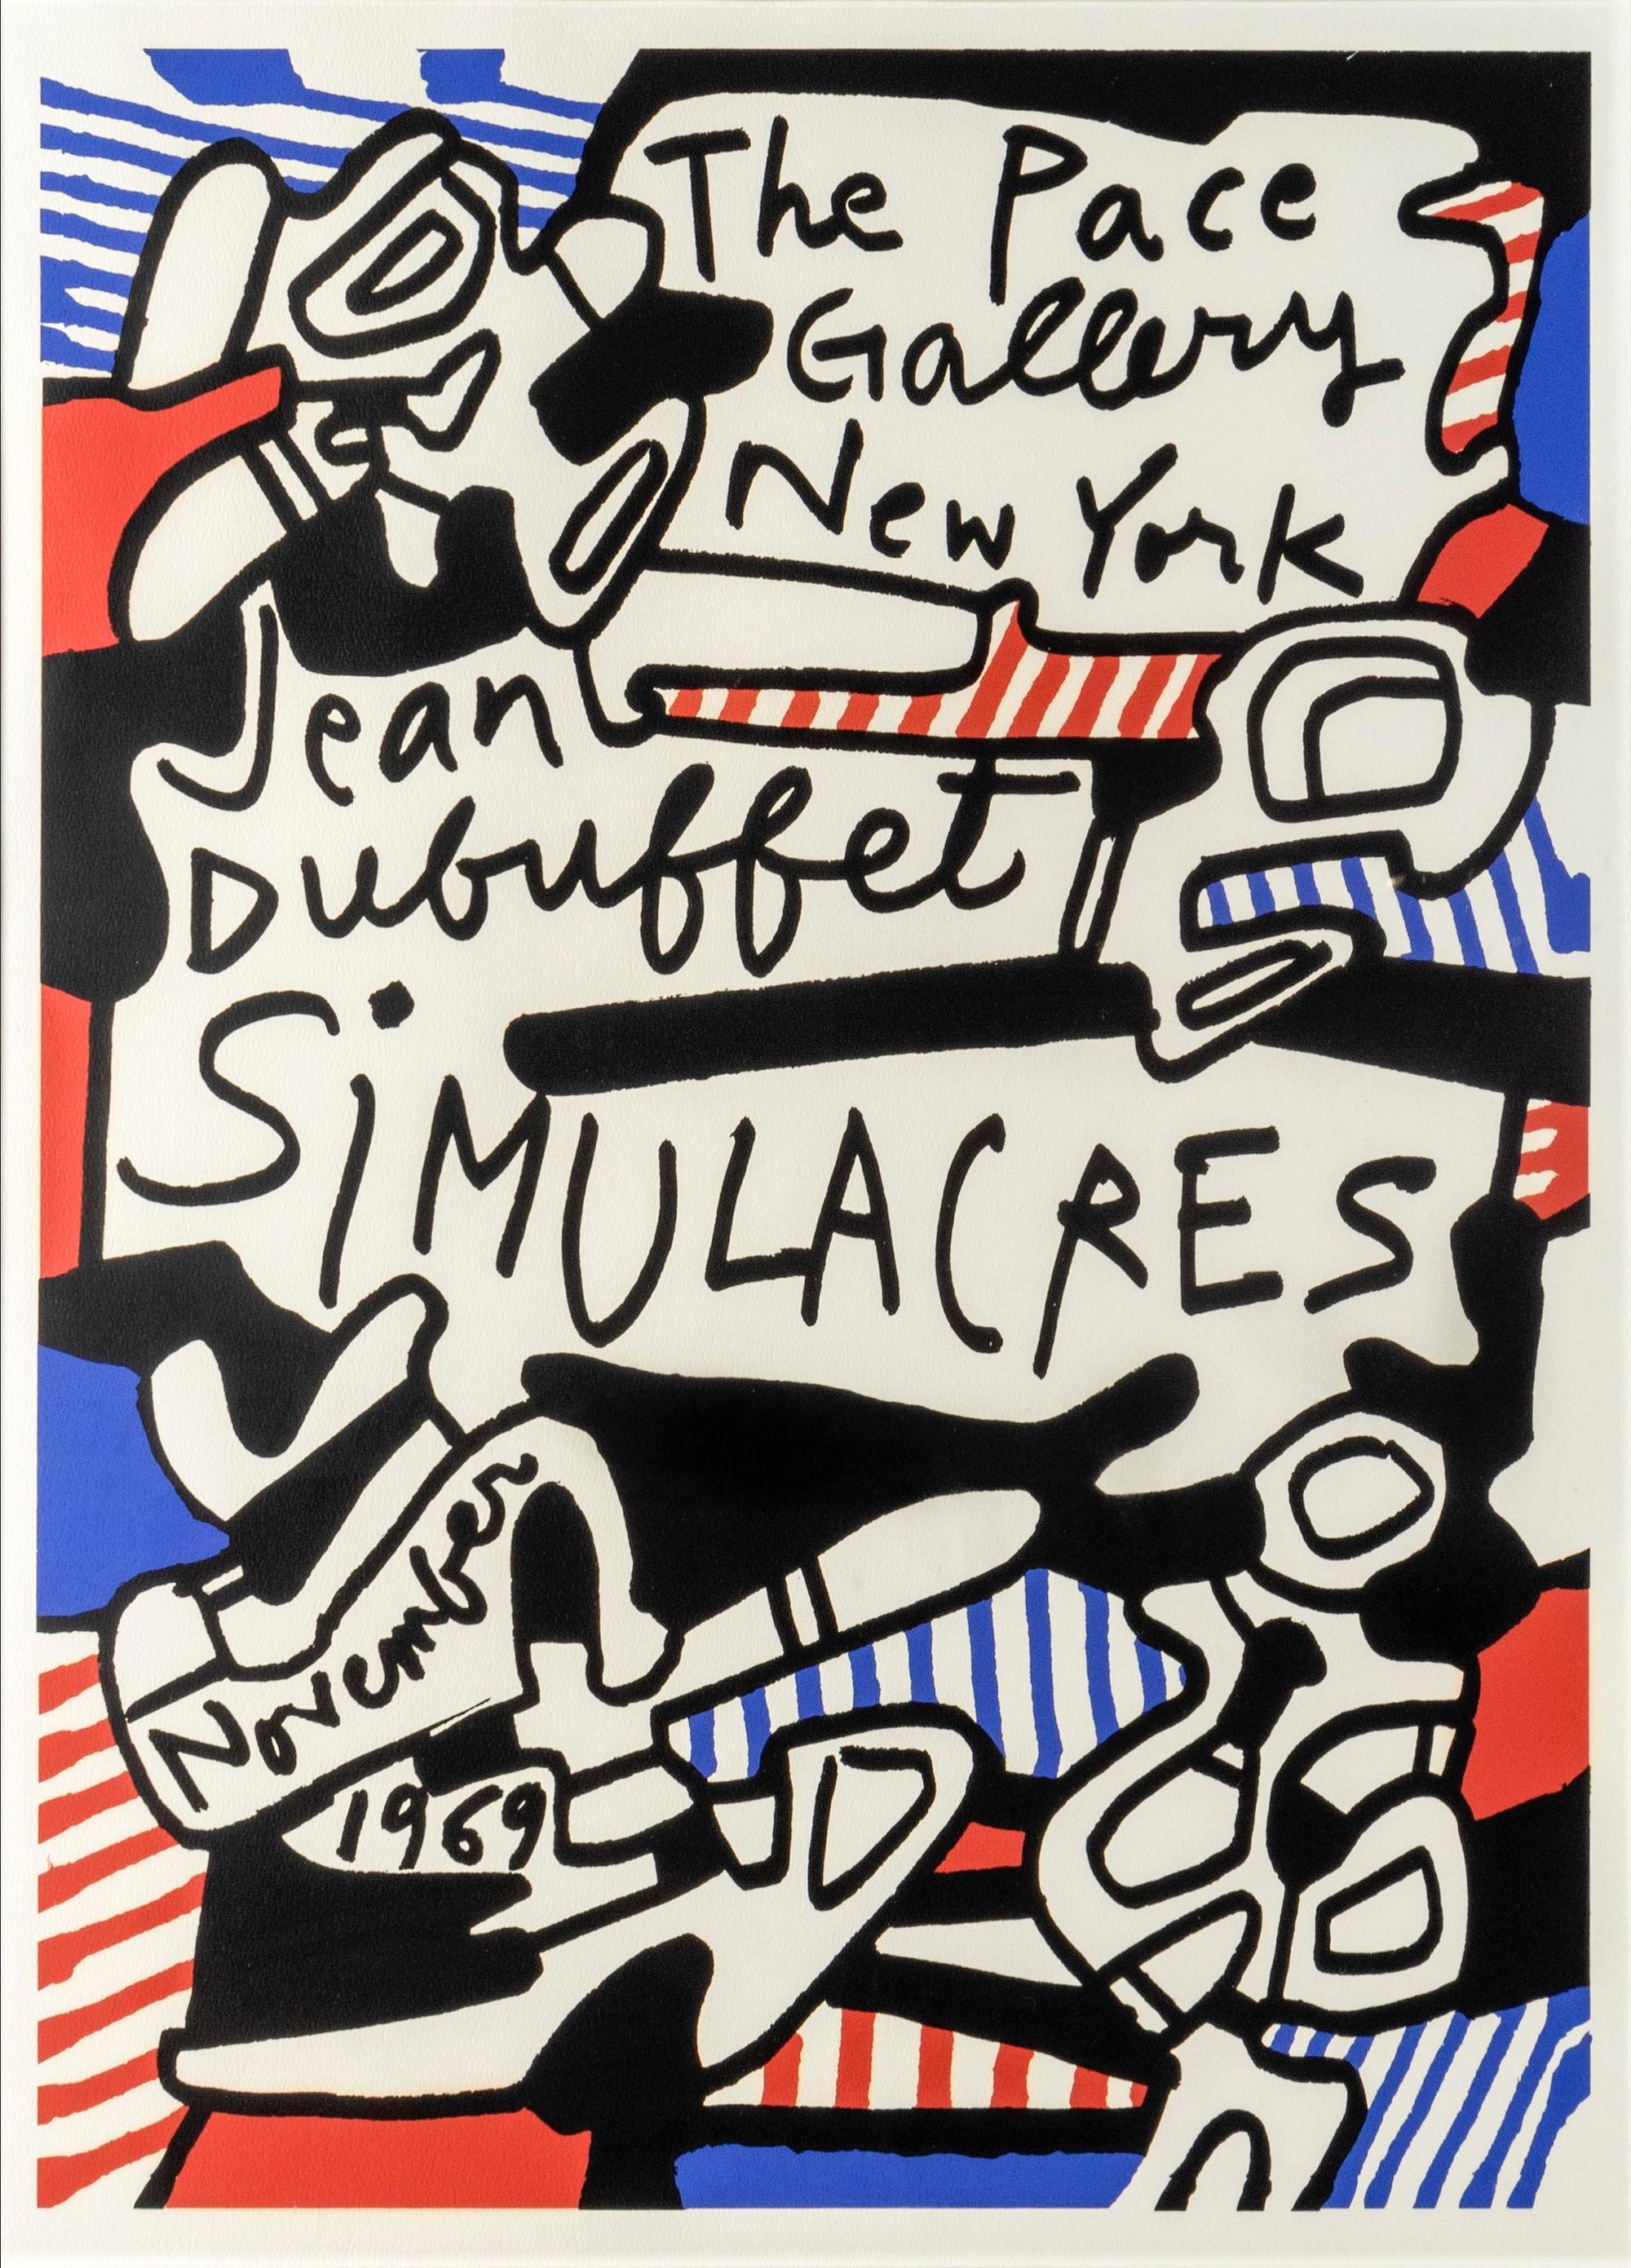 The Pace
Gallery
New York
Jean
Dubuffet
SiMULACRES
November
1969